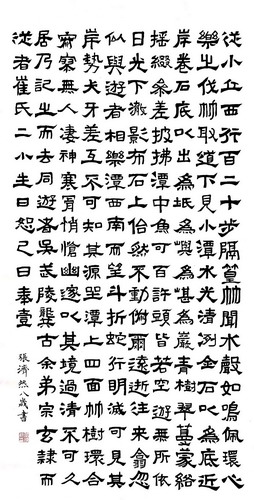 從小丘西行百二十步隔篁竹聞水聲如鳴佩環心
樂之伐竹取道下見小潭水尤清洌全石以為底近
岸卷石底以出為坻為嶼為嵁為巖青樹翠蔓蒙絡
搖綴參差披拂潭中魚可百許頭皆若空遊無所依
日光下澈影布石上佁然不動俶爾遠逝往來翕忽
似與遊者相樂潭西南而望斗折蛇行明滅可見其
岸勢犬牙差互不可知其源坐潭上四面竹樹環合
寂寥無人凄神寒骨悄愴幽邃以其境過清不可久
居乃記之而去同遊者吳武陵龔古余弟宗玄隸而
從者崔氏二小生曰恕己曰奉壹
張濟然八歲書